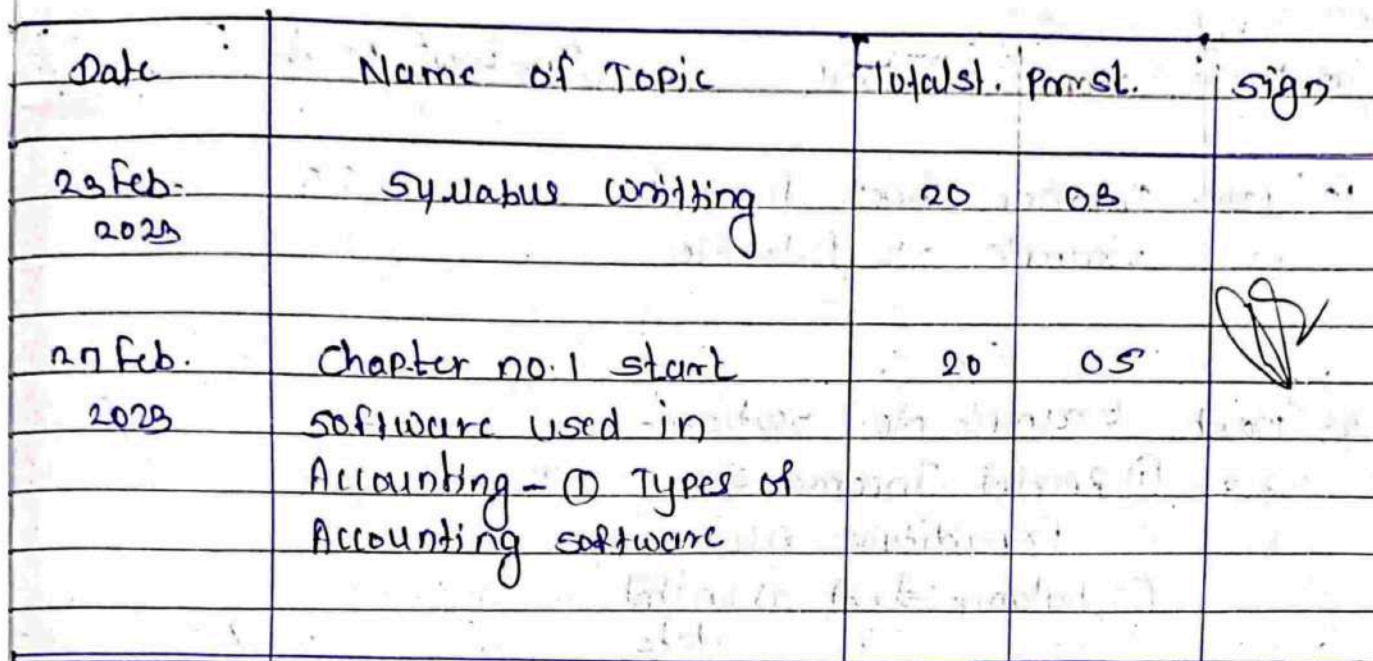 Date Name of Topic Totalst. Prnst. sign
23 Feb. Syllabus writting 20 03
2023
27 Feb. Chapter no. 1 start 20 05
2023 software used in
Accounting - ① Types of
Accounting software